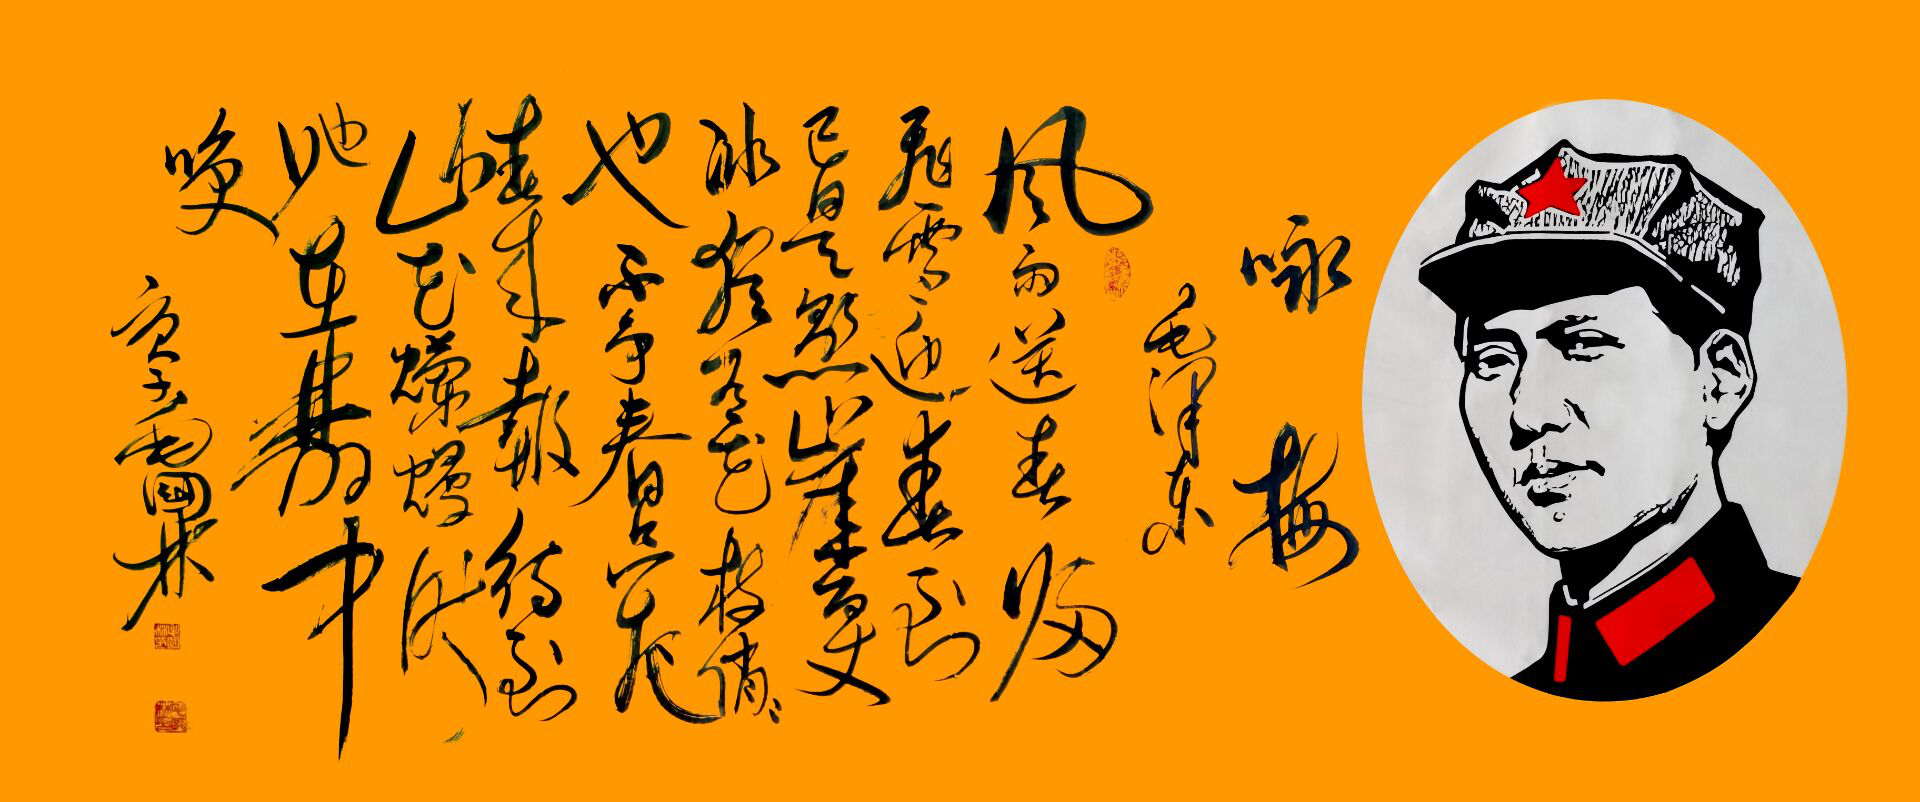 咏梅
毛泽东
风雨送春归
飛雪迎春到
已是懸崖百丈
冰猶有花枝俏
也不争春只把
春来报待到
山花爛熳时
她在叢中
咲
庚子毛國林